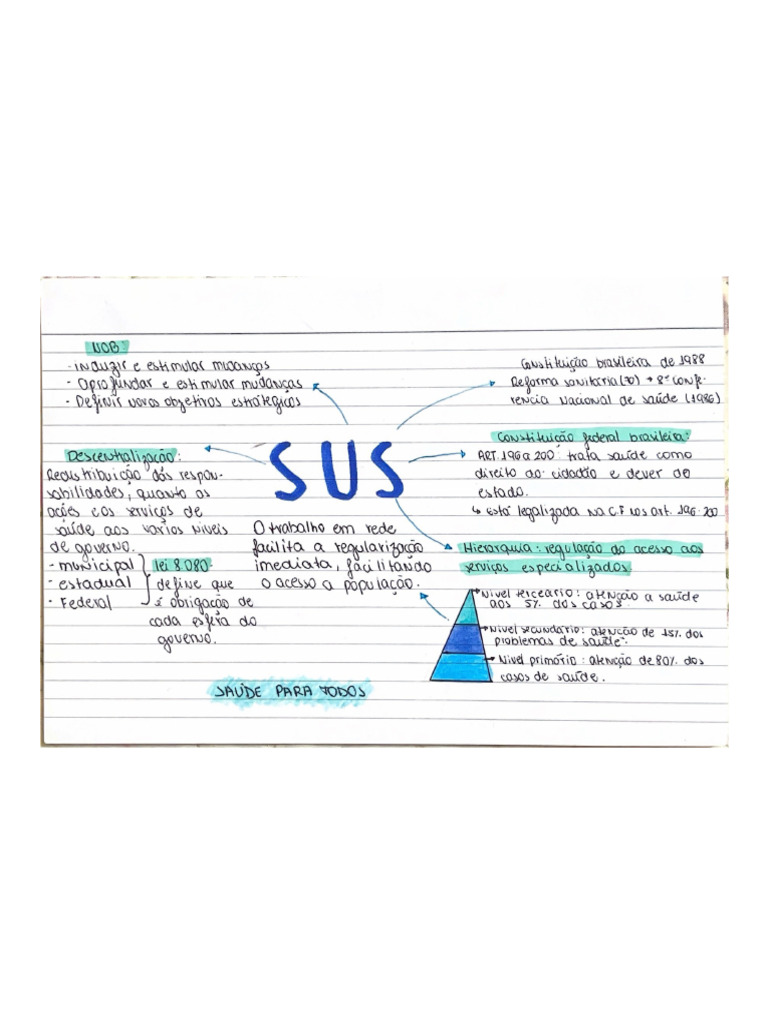 NOB:
- induzir e estimular mudanças
- Aprofundar e estimular mudanças
- Definir novos objetivos estratégicos
Constituição brasileira de 1988
Reforma sanitária (70) → 8ª Confe-
rência Nacional de saúde (1986)
SUS
Descentralização:
Redistribuição dás respon-
sabilidades, quanto as
ações e os serviços de
saúde aos vários níveis
de governo.
- municipal
- estadual
- Federal
lei 8.080
define que
é obrigação de
cada esfera do
governo.
Constituição federal brasileira:
ART. 196 a 200: trata saúde como
direito do cidadão e dever do
estado.
↳ está legalizada na C.F nos art. 196-200
O trabalho em rede
facilita a regularização
imediata, facilitando
o acesso a população.
Hierarquia: regulação do acesso aos
serviços especializados
Nível terceário: atenção a saúde
aos 5% dos casos.
Nível secundário: atenção de 15% dos
problemas de saúde.
Nível primário: atenção de 80% dos
casos de saúde.
SAÚDE PARA TODOS